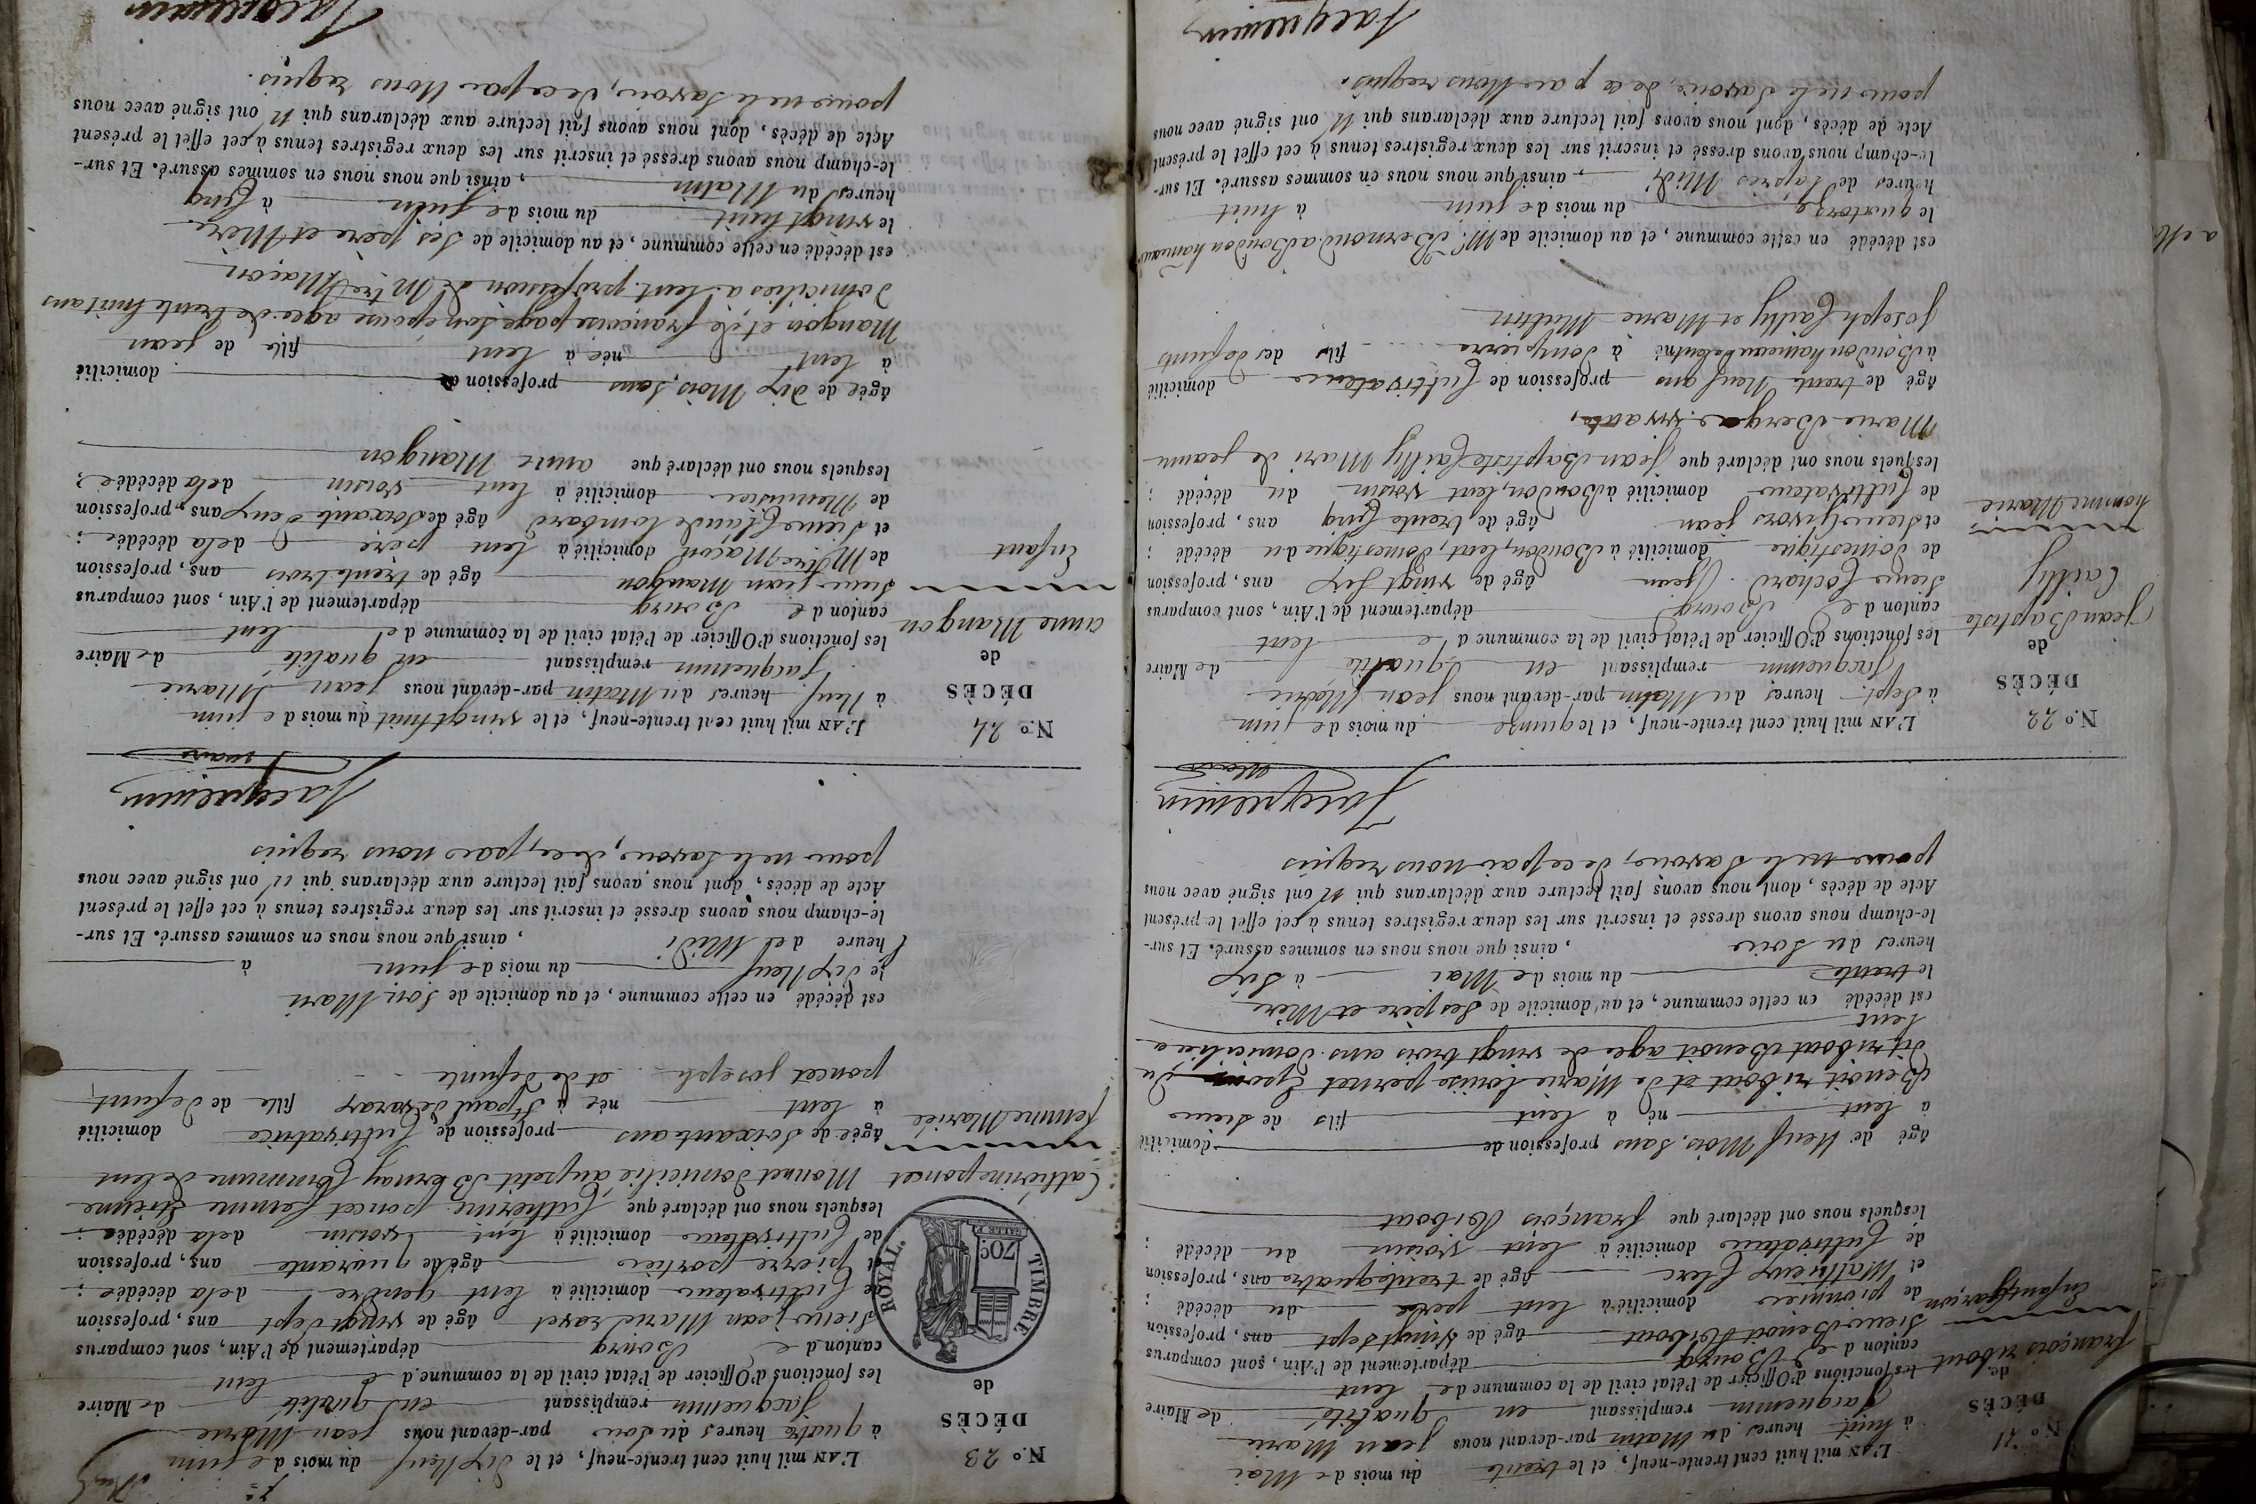 N.º 21
DÉCÈS
de
françois ribout
Enfant garçon
L'AN mil huit cent trente-neuf, et le trente du mois de Mai
à huit heures du Matin par-devant nous jean Marie
Jacquemin remplissant en qualité de Maire
les fonctions d'Officier de l'état civil de la commune de lent
canton de Bourg département de l'Ain, sont comparus
Sieur Benoit Ribout âgé de vingt sept ans, profession
de pionnier domicilié à lent père du décédé ;
et Mathieux Clerc âgé de trente quatre ans, profession
de Cultivateur domicilié à lent voisin du décédé ;
lesquels nous ont déclaré que françois Ribout
âgé de Neuf Mois, sans profession de domicilié
à lent né à lent fils de sieur
Benoit ribout et de Marie louise pernet Epoux du
dit ribout Benoit agée de vingt trois ans domiciliée a
lent
est décédé en cette commune, et au domicile de Ses père et Mère
le trente du mois de Mai à Six
heures du soir , ainsi que nous nous en sommes assuré. Et sur-
le-champ nous avons dressé et inscrit sur les deux registres tenus à cet effet le présent
Acte de décès, dont nous avons fait lecture aux déclarans qui n' ont signé avec nous
pour ne le Savoir, de ce par nous requis
Jacquemin
Maire
N.º 22
DÉCÈS
de
Jean Baptiste
Cailly
homme Marié
L'AN mil huit cent trente-neuf, et le quinze du mois de juin
à Sept heures du Matin par-devant nous jean Marie
Jacquemin remplissant en qualité de Maire
les fonctions d'Officier de l'état civil de la commune de lent
canton de Bourg département de l'Ain, sont comparus
Sieur Cochard Jean âgé de vingt Six ans, profession
de Domestique domicilié à Boudon, lent, Domestique du décédé ;
et sieur Givors jean âgé de trente Cinq ans, profession
de Cultivateur domicilié à Boudon, lent voisin du décédé ;
lesquels nous ont déclaré que Jean Baptiste Cailly Mari de jeanne
Marie Berger vivante,
âgé de trente Neuf ans profession de Cultivateur domicilié
à Boudon hameau de lent né à Dompierre fils des defunts
Joseph Cailly et Marie Mution
est décédé en cette commune, et au domicile de Mr. Bernoud a Boudon hameau
le quatorze du mois de juin à huit
heures de l'après Midi , ainsi que nous nous en sommes assuré. Et sur-
le-champ nous avons dressé et inscrit sur les deux registres tenus à cet effet le présent
Acte de décès, dont nous avons fait lecture aux déclarans qui n' ont signé avec nous
pour ne le Savoir, de ce par Nous requis.
Jacquemin
N.º 23
DÉCÈS
de
TIMBRE ROYAL.
70c.
Catherine poncet
femme Mariée
L'AN mil huit cent trente-neuf, et le dix Neuf du mois de juin
à quatre heures du Soir par-devant nous jean Marie
Jacquemin remplissant en qualité de Maire
les fonctions d'Officier de l'état civil de la commune de lent
canton de Bourg département de l'Ain, sont comparus
Sieur jean Marie ravet âgé de vingt Sept ans, profession
de Cultivateur domicilié à lent gendre de la décédée ;
et pierre portier âgé de quarante ans, profession
de Cultivateur domicilié à lent voisin de la décédée ;
lesquels nous ont déclaré que Catherine poncet femme Etienne
Monnet domicilié au petit Bernay Commune de lent
âgée de Soixante ans profession de Cultivatrice domicilié
à lent née à St paul de varax fille de defunt
poncet joseph et de defunte
est décédé en cette commune, et au domicile de Son Mari
le dix Neuf du mois de juin à
heure de Midi , ainsi que nous nous en sommes assuré. Et sur-
le-champ nous avons dressé et inscrit sur les deux registres tenus à cet effet le présent
Acte de décès, dont nous avons fait lecture aux déclarans qui n' ont signé avec nous
pour ne le Savoir, de ce, par nous requis
Jacquemin
Maire
N.º 24
DÉCÈS
de
anne Mangon
Enfant
L'AN mil huit cent trente-neuf, et le vingt huit du mois de juin
à Neuf heures du Matin par-devant nous jean Marie
Jacquemin remplissant en qualité de Maire
les fonctions d'Officier de l'état civil de la commune de lent
canton de Bourg département de l'Ain, sont comparus
Sieur jean Mangon âgé de trente trois ans, profession
de Mtre Maçon domicilié à lent père de la décédée ;
et Sieur Claude lombard âgé de Soixante deux ans, profession
de Menuisier domicilié à lent voisin de la décédée ;
lesquels nous ont déclaré que anne Mangon
âgée de dix Mois, sans profession de domicilié
à lent née à lent fille de jean
Mangon et de françoise page son épouse agée de trente huit ans
domiciliés a lent. profession de Mtre Maçon
est décédé en cette commune, et au domicile de Ses père et Mère
le vingt huit du mois de juin à Cinq
heures du Matin , ainsi que nous nous en sommes assuré. Et sur-
le-champ nous avons dressé et inscrit sur les deux registres tenus à cet effet le présent
Acte de décès, dont nous avons fait lecture aux déclarans qui n' ont signé avec nous
pour ne le Savoir, de ce par Nous requis.
Jacquemin